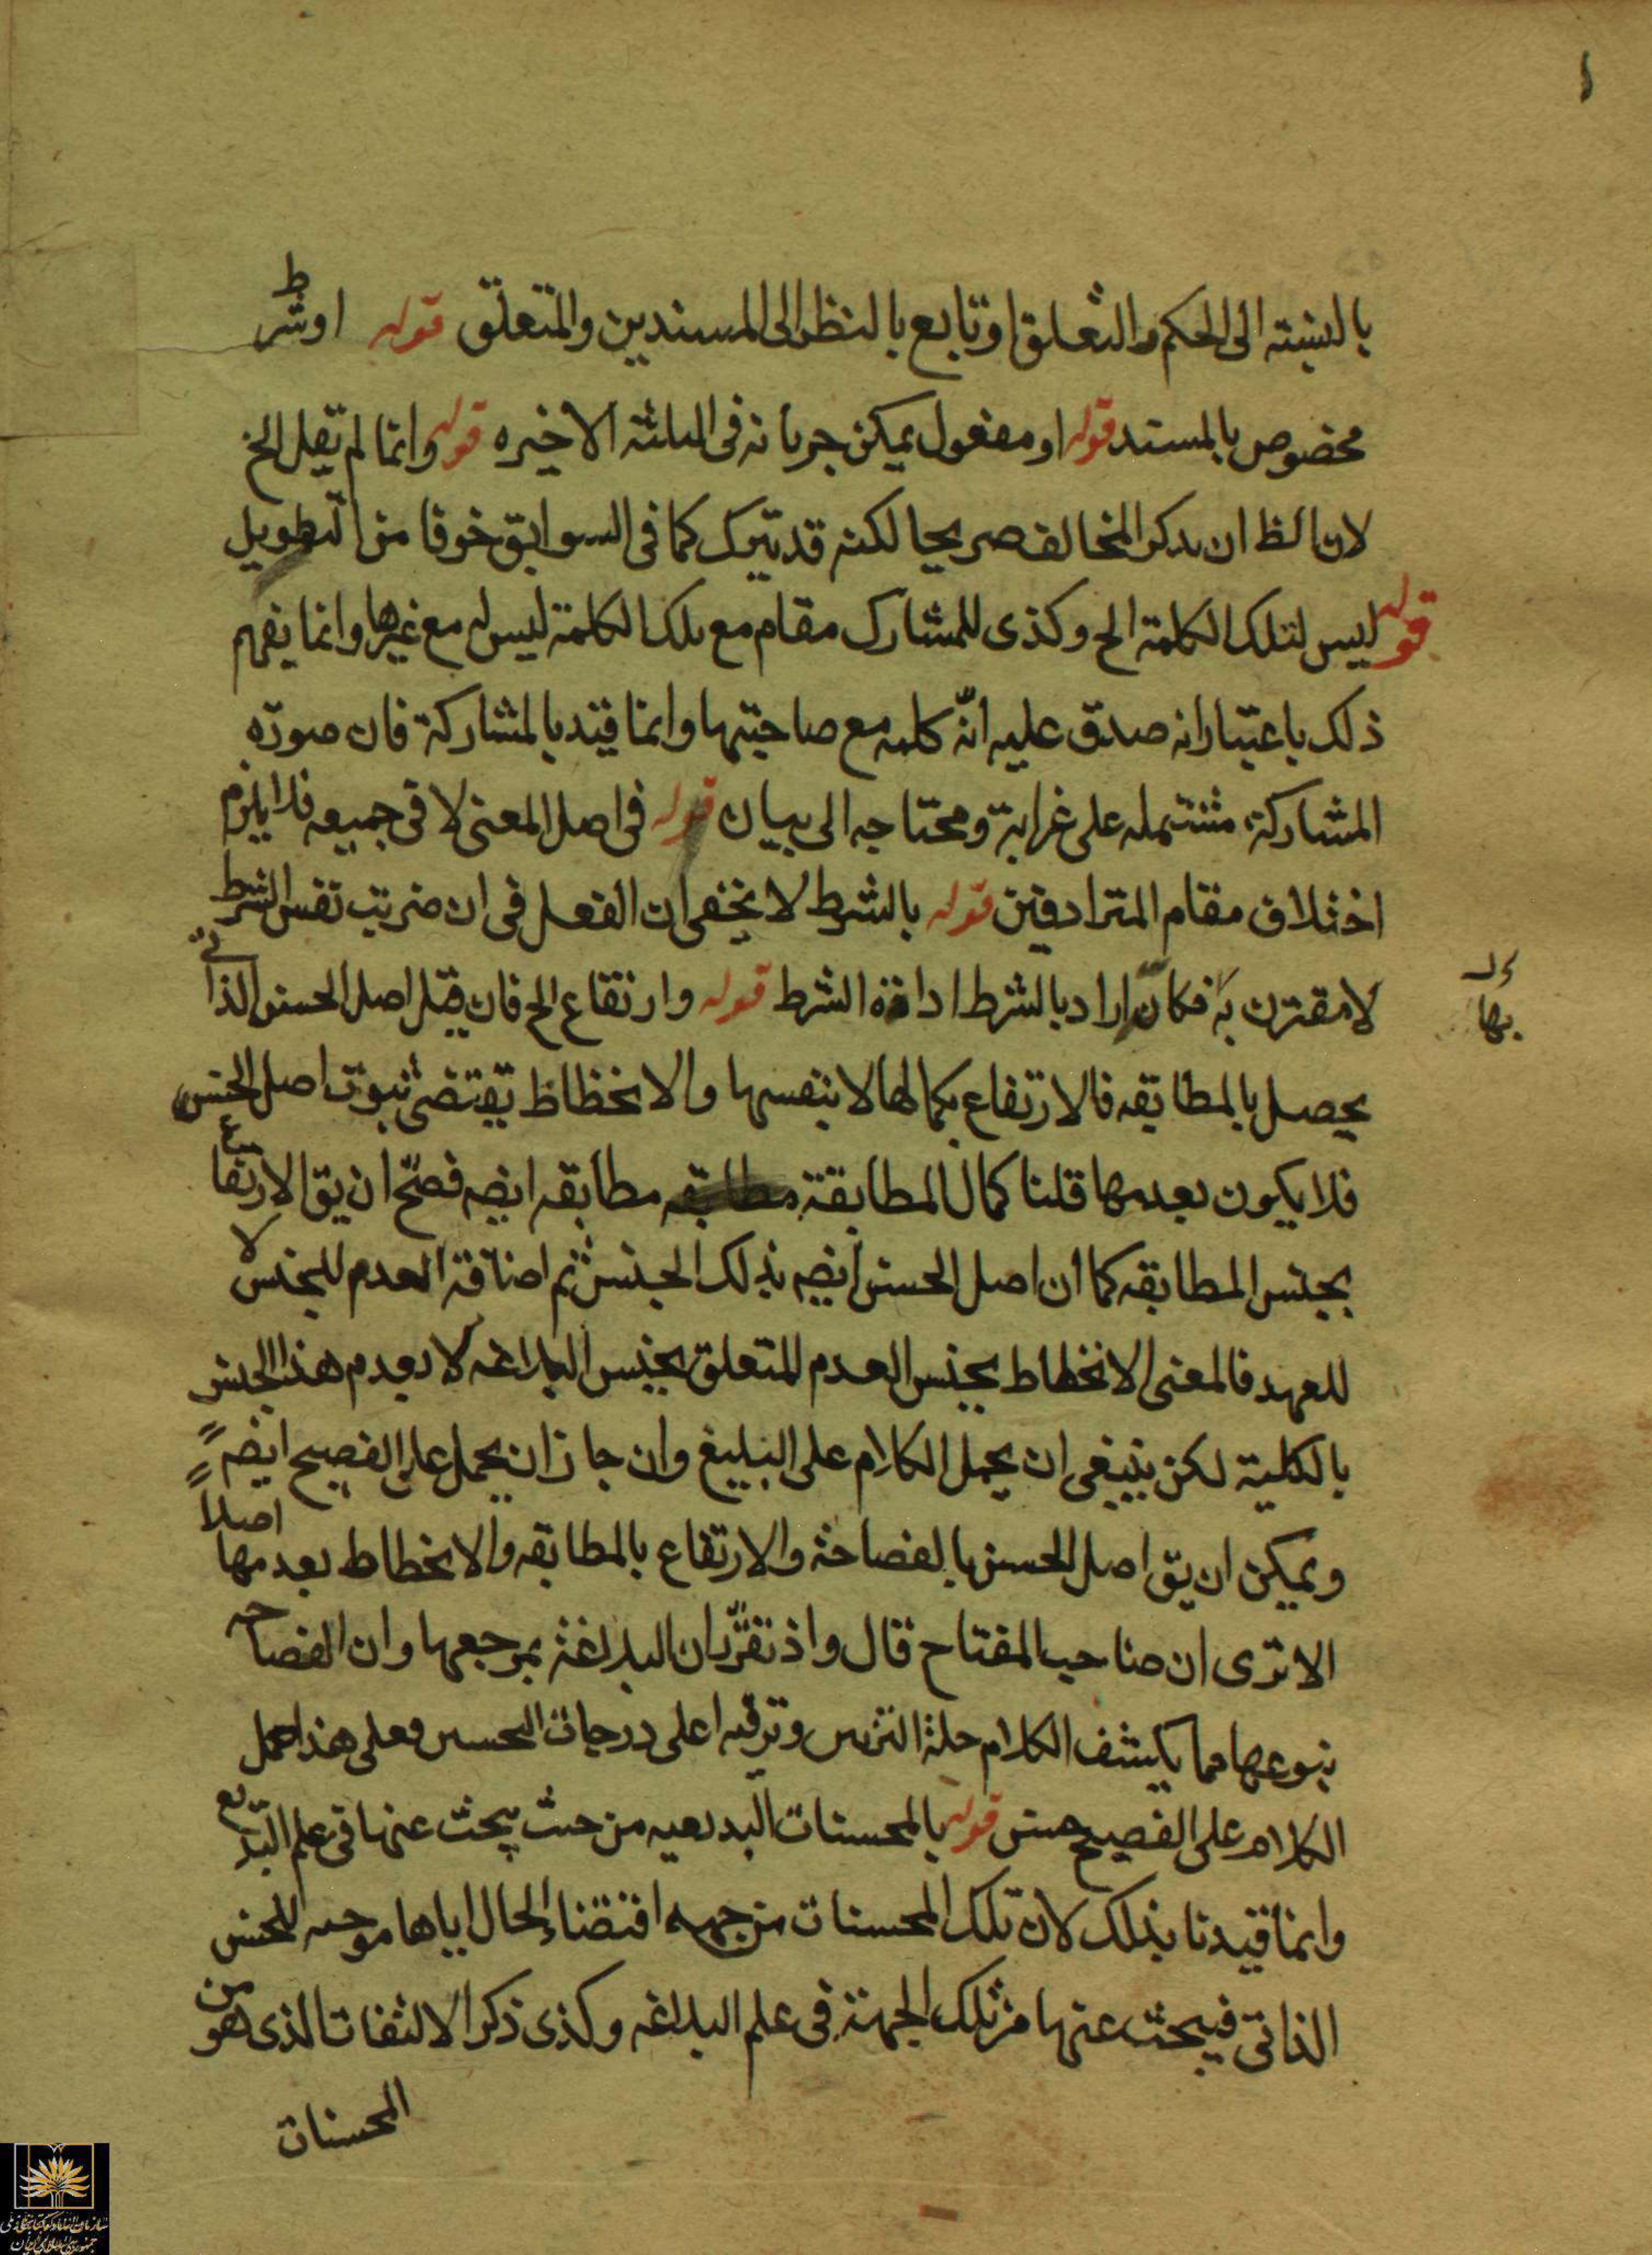 بالنسبته الى الحكم والتعلق او تابع بالنظر الى المسندين والمتعلق قوله او شرط
مخصوص بالمسند قوله او مفعول يمكن جريانه فى الثلثة الاخيره قوله وانما لم يقل الخ
لان الظ ان يذكر المخالف صريحا لكنه قد يترك كما فى السوابق خوفا من التطويل
قوله ليس لتلك الكلمة الخ وكذى للمشارك مقام مع تلك الكلمة ليس له مع غيرها وانما يفهم
ذلك باعتبار انه صدق عليه انّه كلمه مع صاحبتها وانما قيد بالمشاركة فان صورته
المشاركة مشتمله على غرابة ومحتاجه الى بيان قوله فى اصل المعنى لا فى جميعه فلا يلزم
اختلاف مقام المترادفين قوله بالشرط لا يخفى ان الفعل فى ان ضربت نفس الشرط
لا مقترن به فكانّ اراد بالشرط اداة الشرط قوله وارتفاع الخ فان قيل اصل الحسن الذاتى
يحصل بالمطابقه فالارتفاع بكمالها لا بنفسها والانحطاط يقتضى ثبوت اصل الحسن
فلا يكون بعدمها قلنا كمال المطابقة مطابقه ايضه فصحّ ان يق الارتفاع
بجنس المطابقه كما ان اصل الحسن ايضه بذلك الجنس ثم اضافة العدم للجنس لا
للعهد فالمعنى الانحطاط بجنس العدم المتعلق بجنس البلاغه لا بعدم هذا الجنس
بالكلية لكن ينبغى ان يحمل الكلام على البليغ وان جاز ان يحمل على الفصيح ايضه
ويمكن ان يق اصل الحسن بالفصاحة والارتفاع بالمطابقه والانحطاط بعدمها اصلاً
الا ترى ان صاحب المفتاح قال واذ تقرّر ان البلاغة بمرجعها وان الفصاحه
بنوعيها مما يكشف الكلام حلة التزيين وترقيه اعلى درجات التحسين فعلى هذا حمل
الكلام على الفصيح حسن قوله بالمحسنات البديعيه من حيث يبحث عنها فى علم البديع
وانما قيدنا بذلك لان تلك المحسنات من جهه اقتضاء الحال اياها موجبه للحسن
الذاتى فيبحث عنها من تلك الجهة فى علم البلاغه وكذى ذكر الالتفات الذى هو من
المحسنات
بها